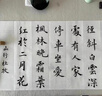 徑斜白雲深
處有人家
停車坐愛
楓林晚霜葉
紅於二月花
山行杜牧